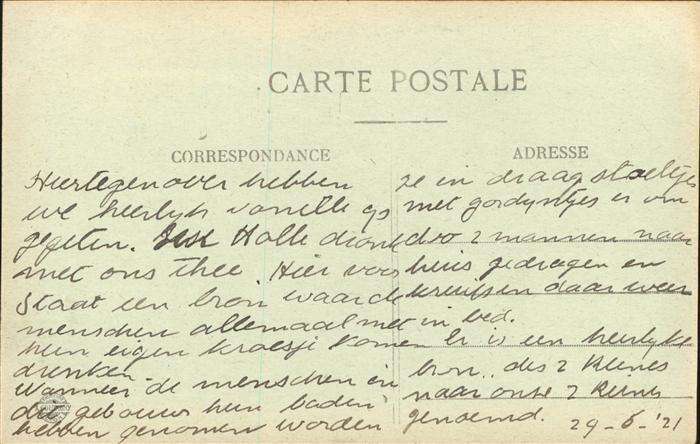 CARTE POSTALE
CORRESPONDANCE
Hiertegenover hebben
we heerlijk vanille ijs
gegeten. Holle dronk
met ons thee. Hier voor
staat een bron waar de
menschen allemaal met
hun eigen kroesje komen
drinken.
Wanneer de menschen in
dit gebouw hun baden
hebben genomen worden
ADRESSE
ze in draagstoeltjes
met gordijntjes er om
door 2 mannen naar
huis gedragen en
kruipen daar weer
in bed.
Er is een heerlijke
bron, des 2 Reines
naar onze 2 Reines
genoemd.
29-6-'21